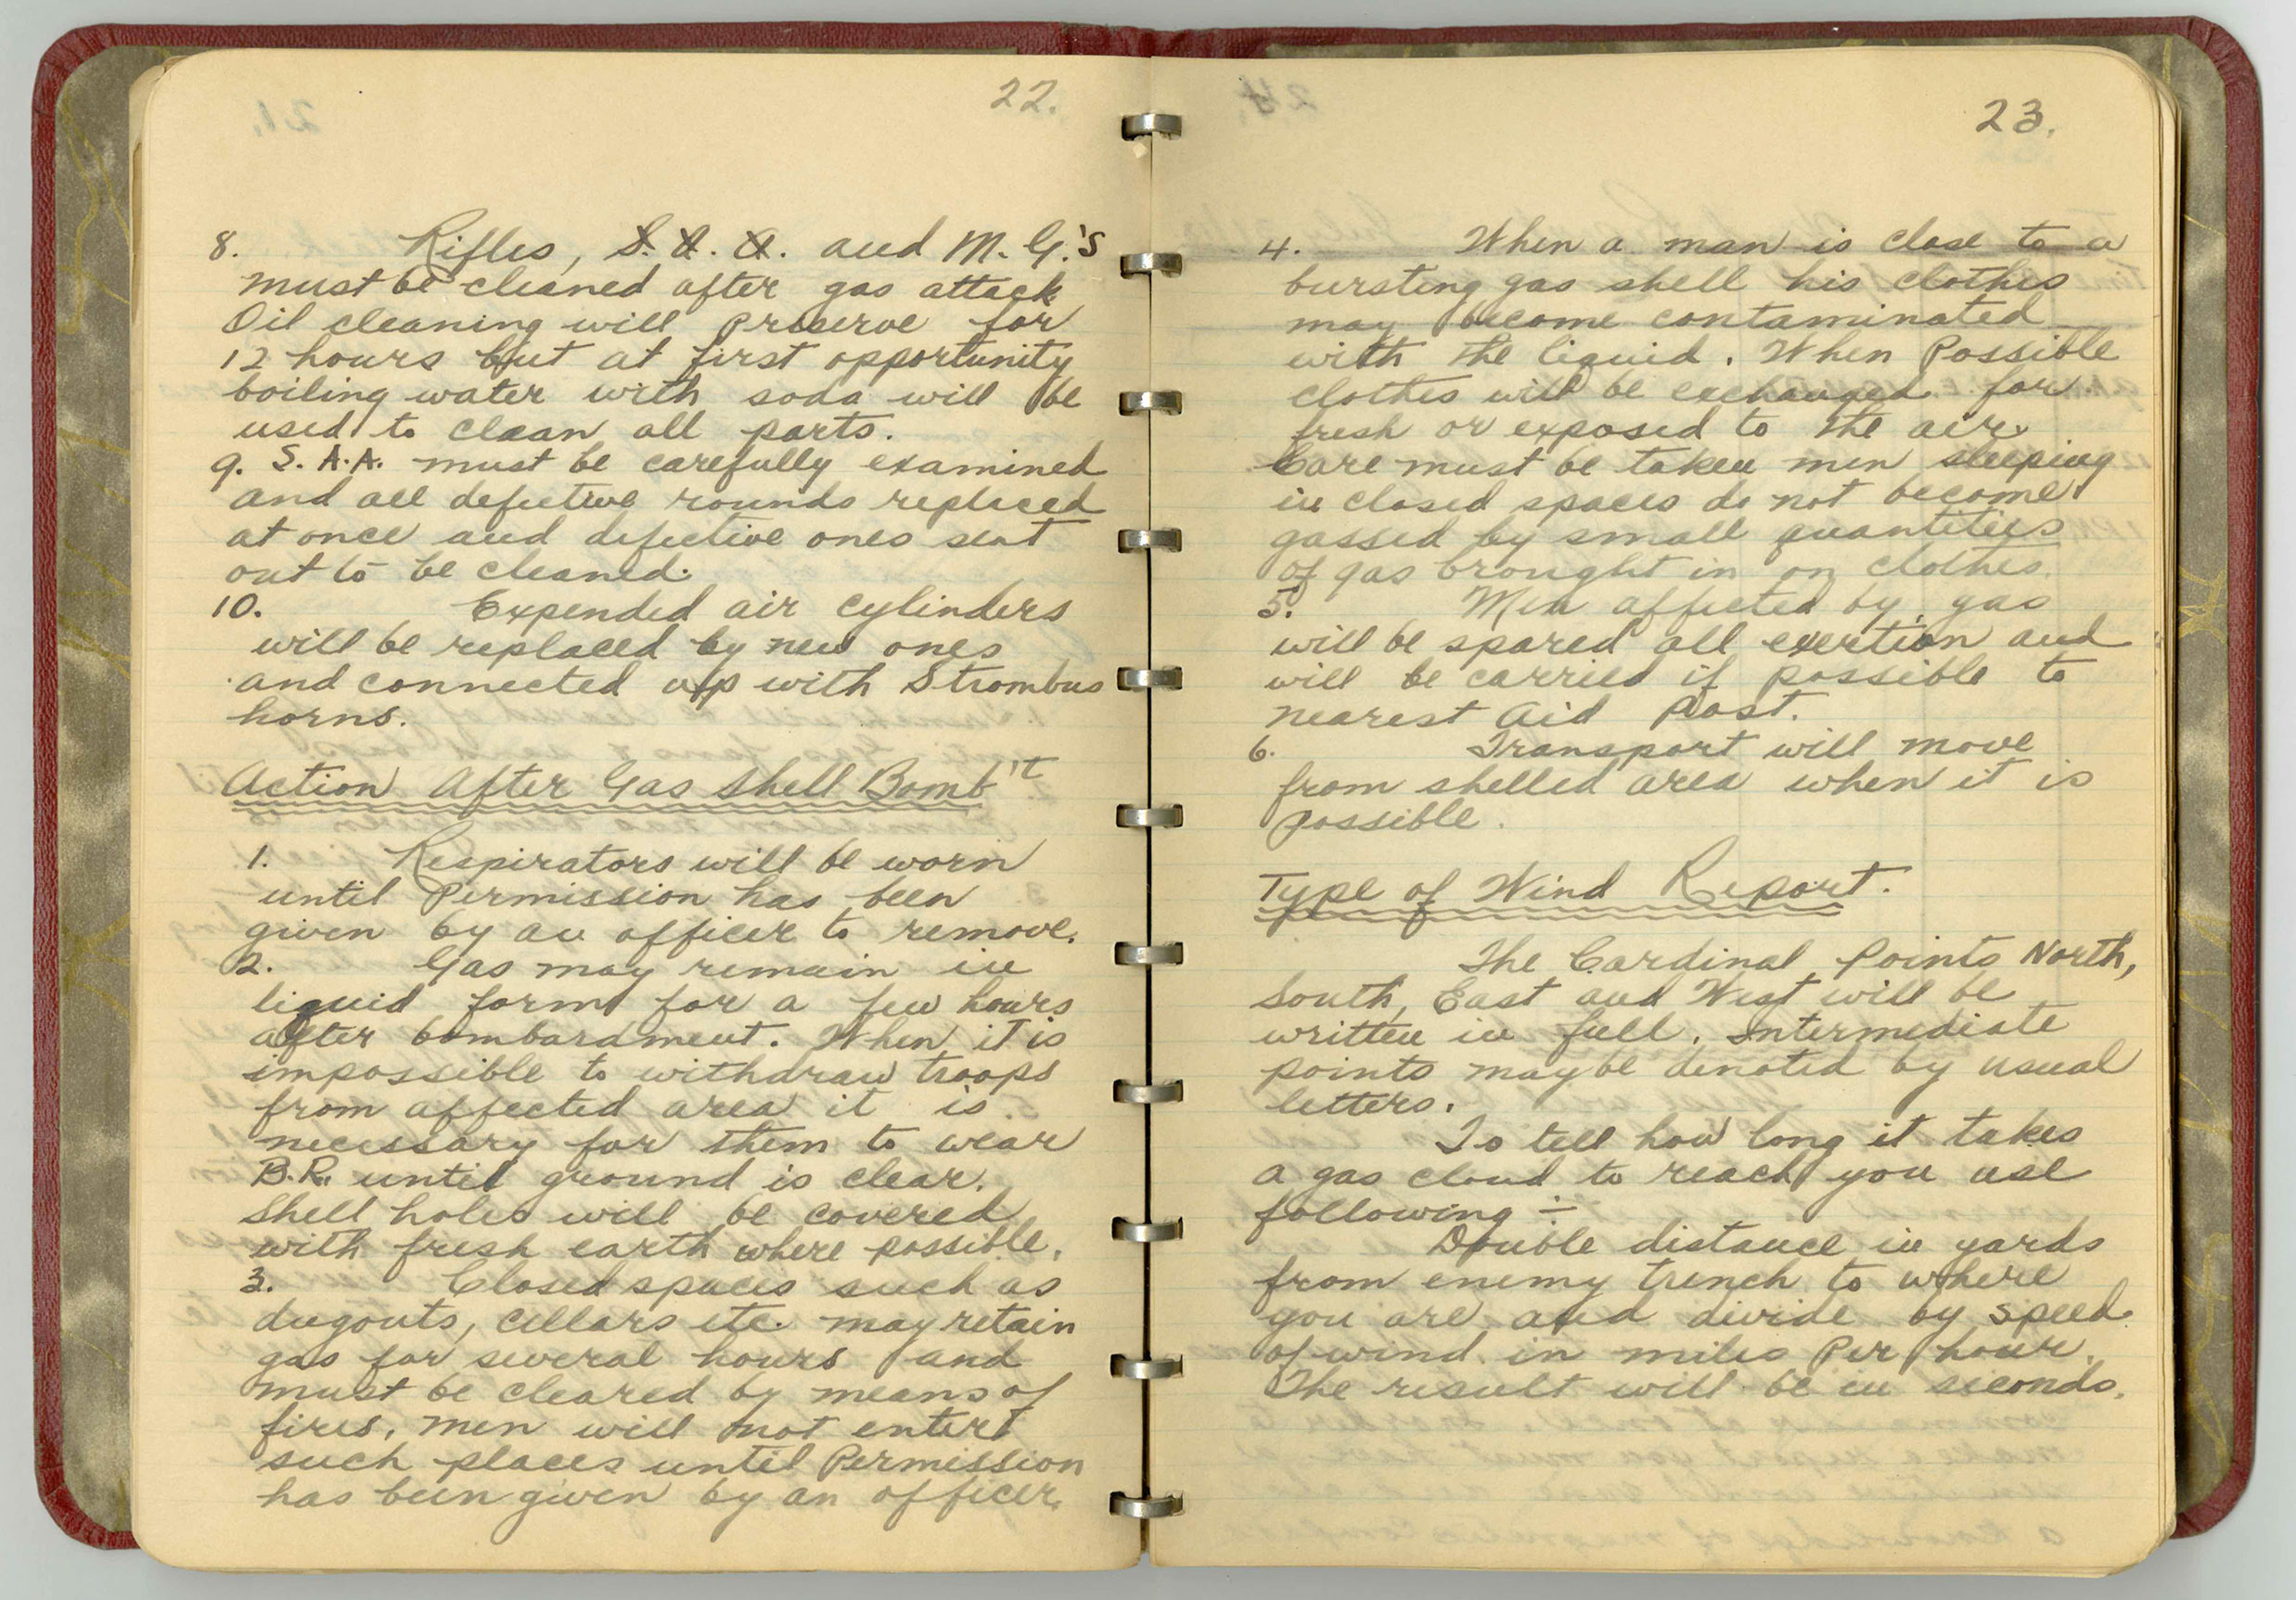 22.
8. Rifles, S. A. A. and M. G.'s
must be cleaned after gas attack
Oil cleaning will preserve for
12 hours but at first opportunity
boiling water with soda will be
used to clean all parts.
9. S. A. A. must be carefully examined
and all defective rounds replaced
at once and defective ones sent
out to be cleaned.
10. Expended air cylinders
will be replaced by new ones
and connected up with Strombus
horns.
Action After Gas Shell Bomb't
1. Respirators will be worn
until Permission has been
given by an officer to remove.
2. Gas may remain in
liquid form for a few hours
after bombardment. When it is
impossible to withdraw troops
from affected area it is
necessary for them to wear
B.R. until ground is clear.
Shell holes will be covered
with fresh earth where possible.
3. Closed spaces such as
dugouts, cellars etc. may retain
gas for several hours and
must be cleared by means of
fires, men will not enter
such places until Permission
has been given by an officer.
23.
4. When a man is close to a
bursting gas shell his clothes
may become contaminated
with the liquid. When Possible
clothes will be exchanged for
fresh or exposed to the air.
Care must be taken men sleeping
in closed spaces do not become
gassed by small quantities
of gas brought in on clothes.
5. Men affected by gas
will be spared all exertion and
will be carried if possible to
nearest Aid Post.
6. Transport will move
from shelled area when it is
possible.
Type of Wind Report.
The Cardinal Points North,
South, East and West will be
written in full. Intermediate
points may be denoted by usual
letters.
To tell how long it takes
a gas cloud to reach you use
following :-
Double distance in yards
from enemy trench to where
you are and divide by speed
of wind in miles Per hour.
The result will be in seconds.